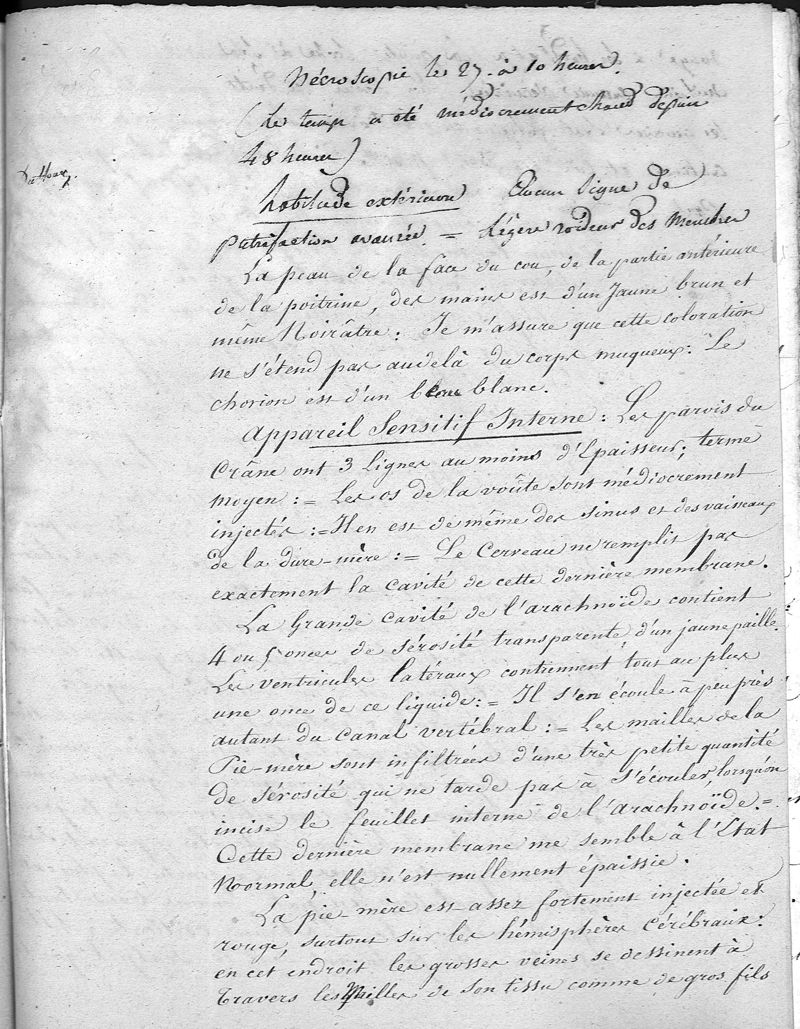 Nécroscopie les 27. à 10 heures.
(Le temps a été médiocrement chaud depuis
48 heures)
habitude extérieure Aucun signe de
putréfaction avancée. = Légère roideur des Membres
La peau de la face du cou, de la partie antérieure
de la poitrine, des mains est d'un Jaune brun et
même Noirâtre: Je m'assure que cette coloration
ne s'étend pas audelà du corps muqueux: Le
chorion est d'un blanc.
Appareil Sensitif Interne: Les parois du
Crâne ont 3 Lignes au moins d'Epaisseur, terme
moyen: = Les os de la voûte sont médiocrement
injectés: = Il en est de même des sinus et des vaisseaux
de la dure-mère: = Le Cerveau ne remplit pas
exactement la cavité de cette dernière membrane.
La Grande cavité de l'arachnoïde contient
4 ou 5 onces de sérosité transparente d'un jaune paille.
Les ventricules latéraux contiennent tout au plus
une once de ce liquide: = Il s'en écoule à peu près
autant du Canal vertébral: = Les mailles de la
Pie-mère sont infiltrées d'une très petite quantité
de sérosité qui ne tarde pas à s'écouler, lorsqu'on
incise le feuillet interne de l'arachnoïde. =
Cette dernière membrane me semble à l'Etat
Noormal, elle n'est nullement épaissie.
La pie mère est assez fortement injectée et
rouge, surtout sur les hémisphères cérébraux:
en cet endroit les grosses veines se dessinent à
travers les Mailles de son tissu comme de gros fils